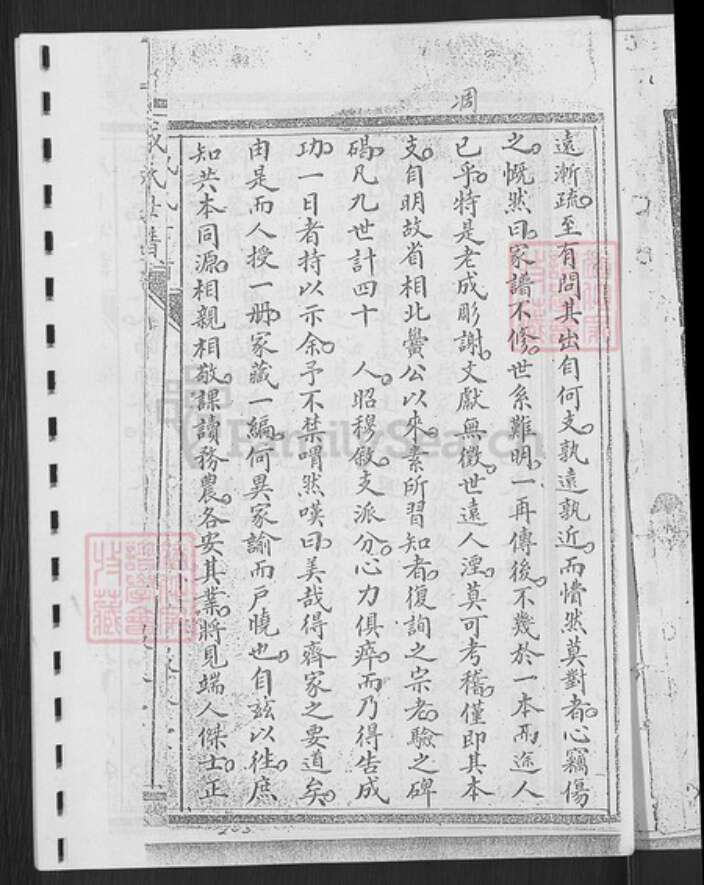 凋
遠漸疏。至有問其出自何支。孰遠孰近。而懵然莫對者。心竊傷
之。慨然曰。家譜不修。世系難明。一再傳後。不幾於一本而途人
已乎。特是老成彫謝。文獻無徵。世遠人湮。莫可考稽。僅即其本
支。自明故省相北黌公以來。素所習知者。復詢之宗老。驗之碑
碣。凡九世計四十 人。昭穆敘。支派分。心力俱瘁。而乃得告成
功。一日者持以示余。予不禁喟然嘆曰。美哉得齊家之要道矣。
由是而人授一册。家藏一編。何異家諭而戶曉也。自茲以徃。庶
知共本同源。相親相敬。課讀務農。各安其業。將見端人傑士。正
氏世譜
FamilySearch